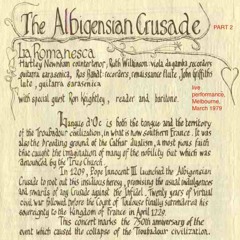 The Albigensian Crusade
PART 2
La Romanesca
Hartley Newnham countertenor, Ruth Wilkinson viola da gamba, recorders
guitarra sarasenica, Ros Bandt recorders, renaissance flute, John Griffiths
lute, guitarra sarasenica
with special guest Ron Keightley, reader and baritone.
live
performance,
Melbourne,
March 1979
Langue d'Oc is both the tongue and the territory
of the Troubadour civilization, in what is now southern France. It was
also the breeding ground of the Cathar dualism, a most pious faith
that caught the imagination of many of the nobility but which was
denounced by the True Church.
In 1209, Pope Innocent III launched the Albigensian
Crusade to root out this insidious heresy, promising the usual indulgences
and rewards of any Crusade against the Infidel. Twenty years of virtual
civil war followed before the Count of Toulouse finally surrendered his
sovereignty to the Kingdom of France in April 1229.
This concert marks the 750th anniversary of the
event which caused the collapse of the Troubadour civilization.